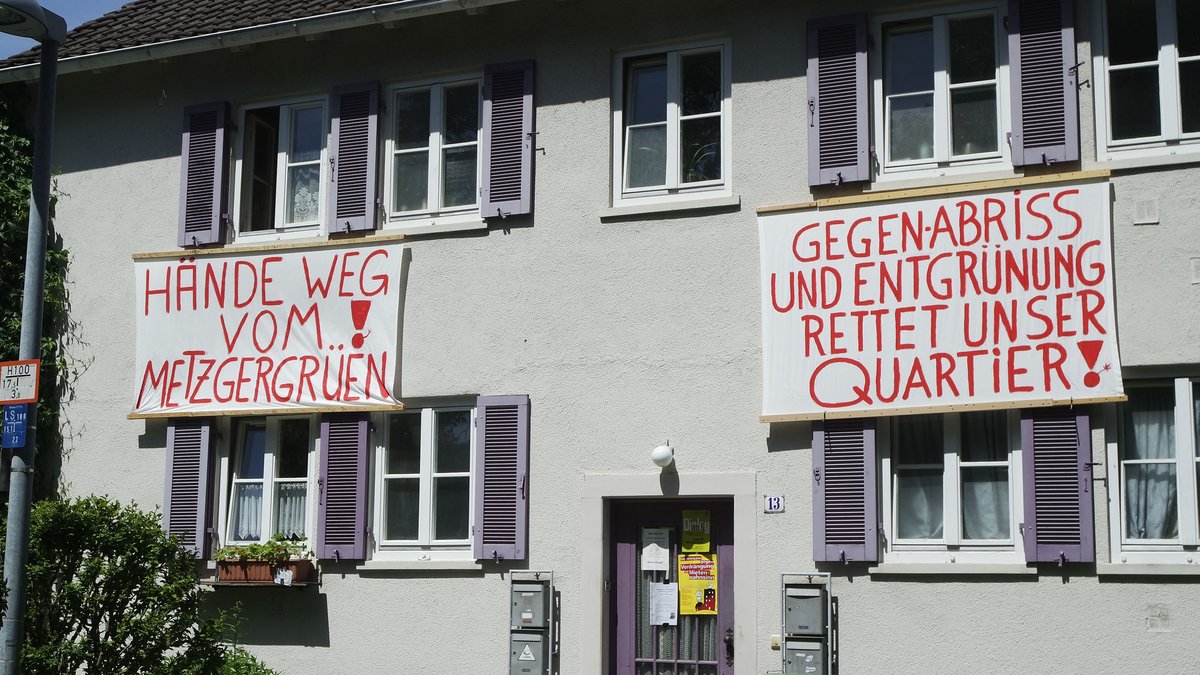 HÄNDE WEG
VOM !
METZGERGRÜEN
GEGEN-ABRISS
UND ENTGRÜNUNG
RETTET UNSER
QUARTIER!
H100
LS 100
22
13
Verdrängung
Mieten-
wahnsinn